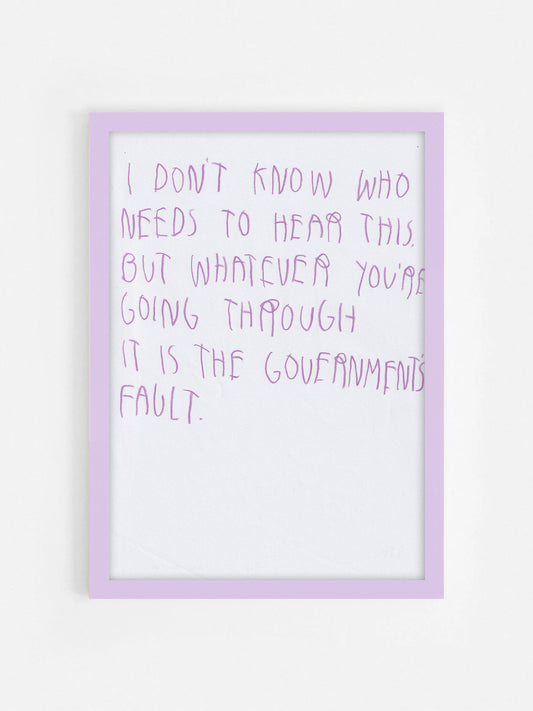 I DON'T KNOW WHO
NEEDS TO HEAR THIS.
BUT WHATEVER YOU'RE
GOING THROUGH
IT IS THE GOVERNMENT'S
FAULT.